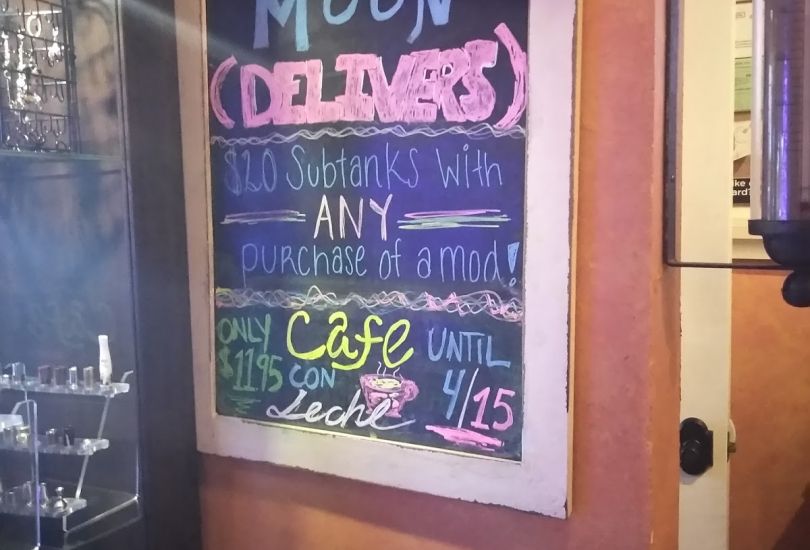 MOON
(DELIVERS)
$20 Subtanks with
ANY
purchase of a mod!
ONLY Cafe UNTIL
$1195 CON 4/15
Leche